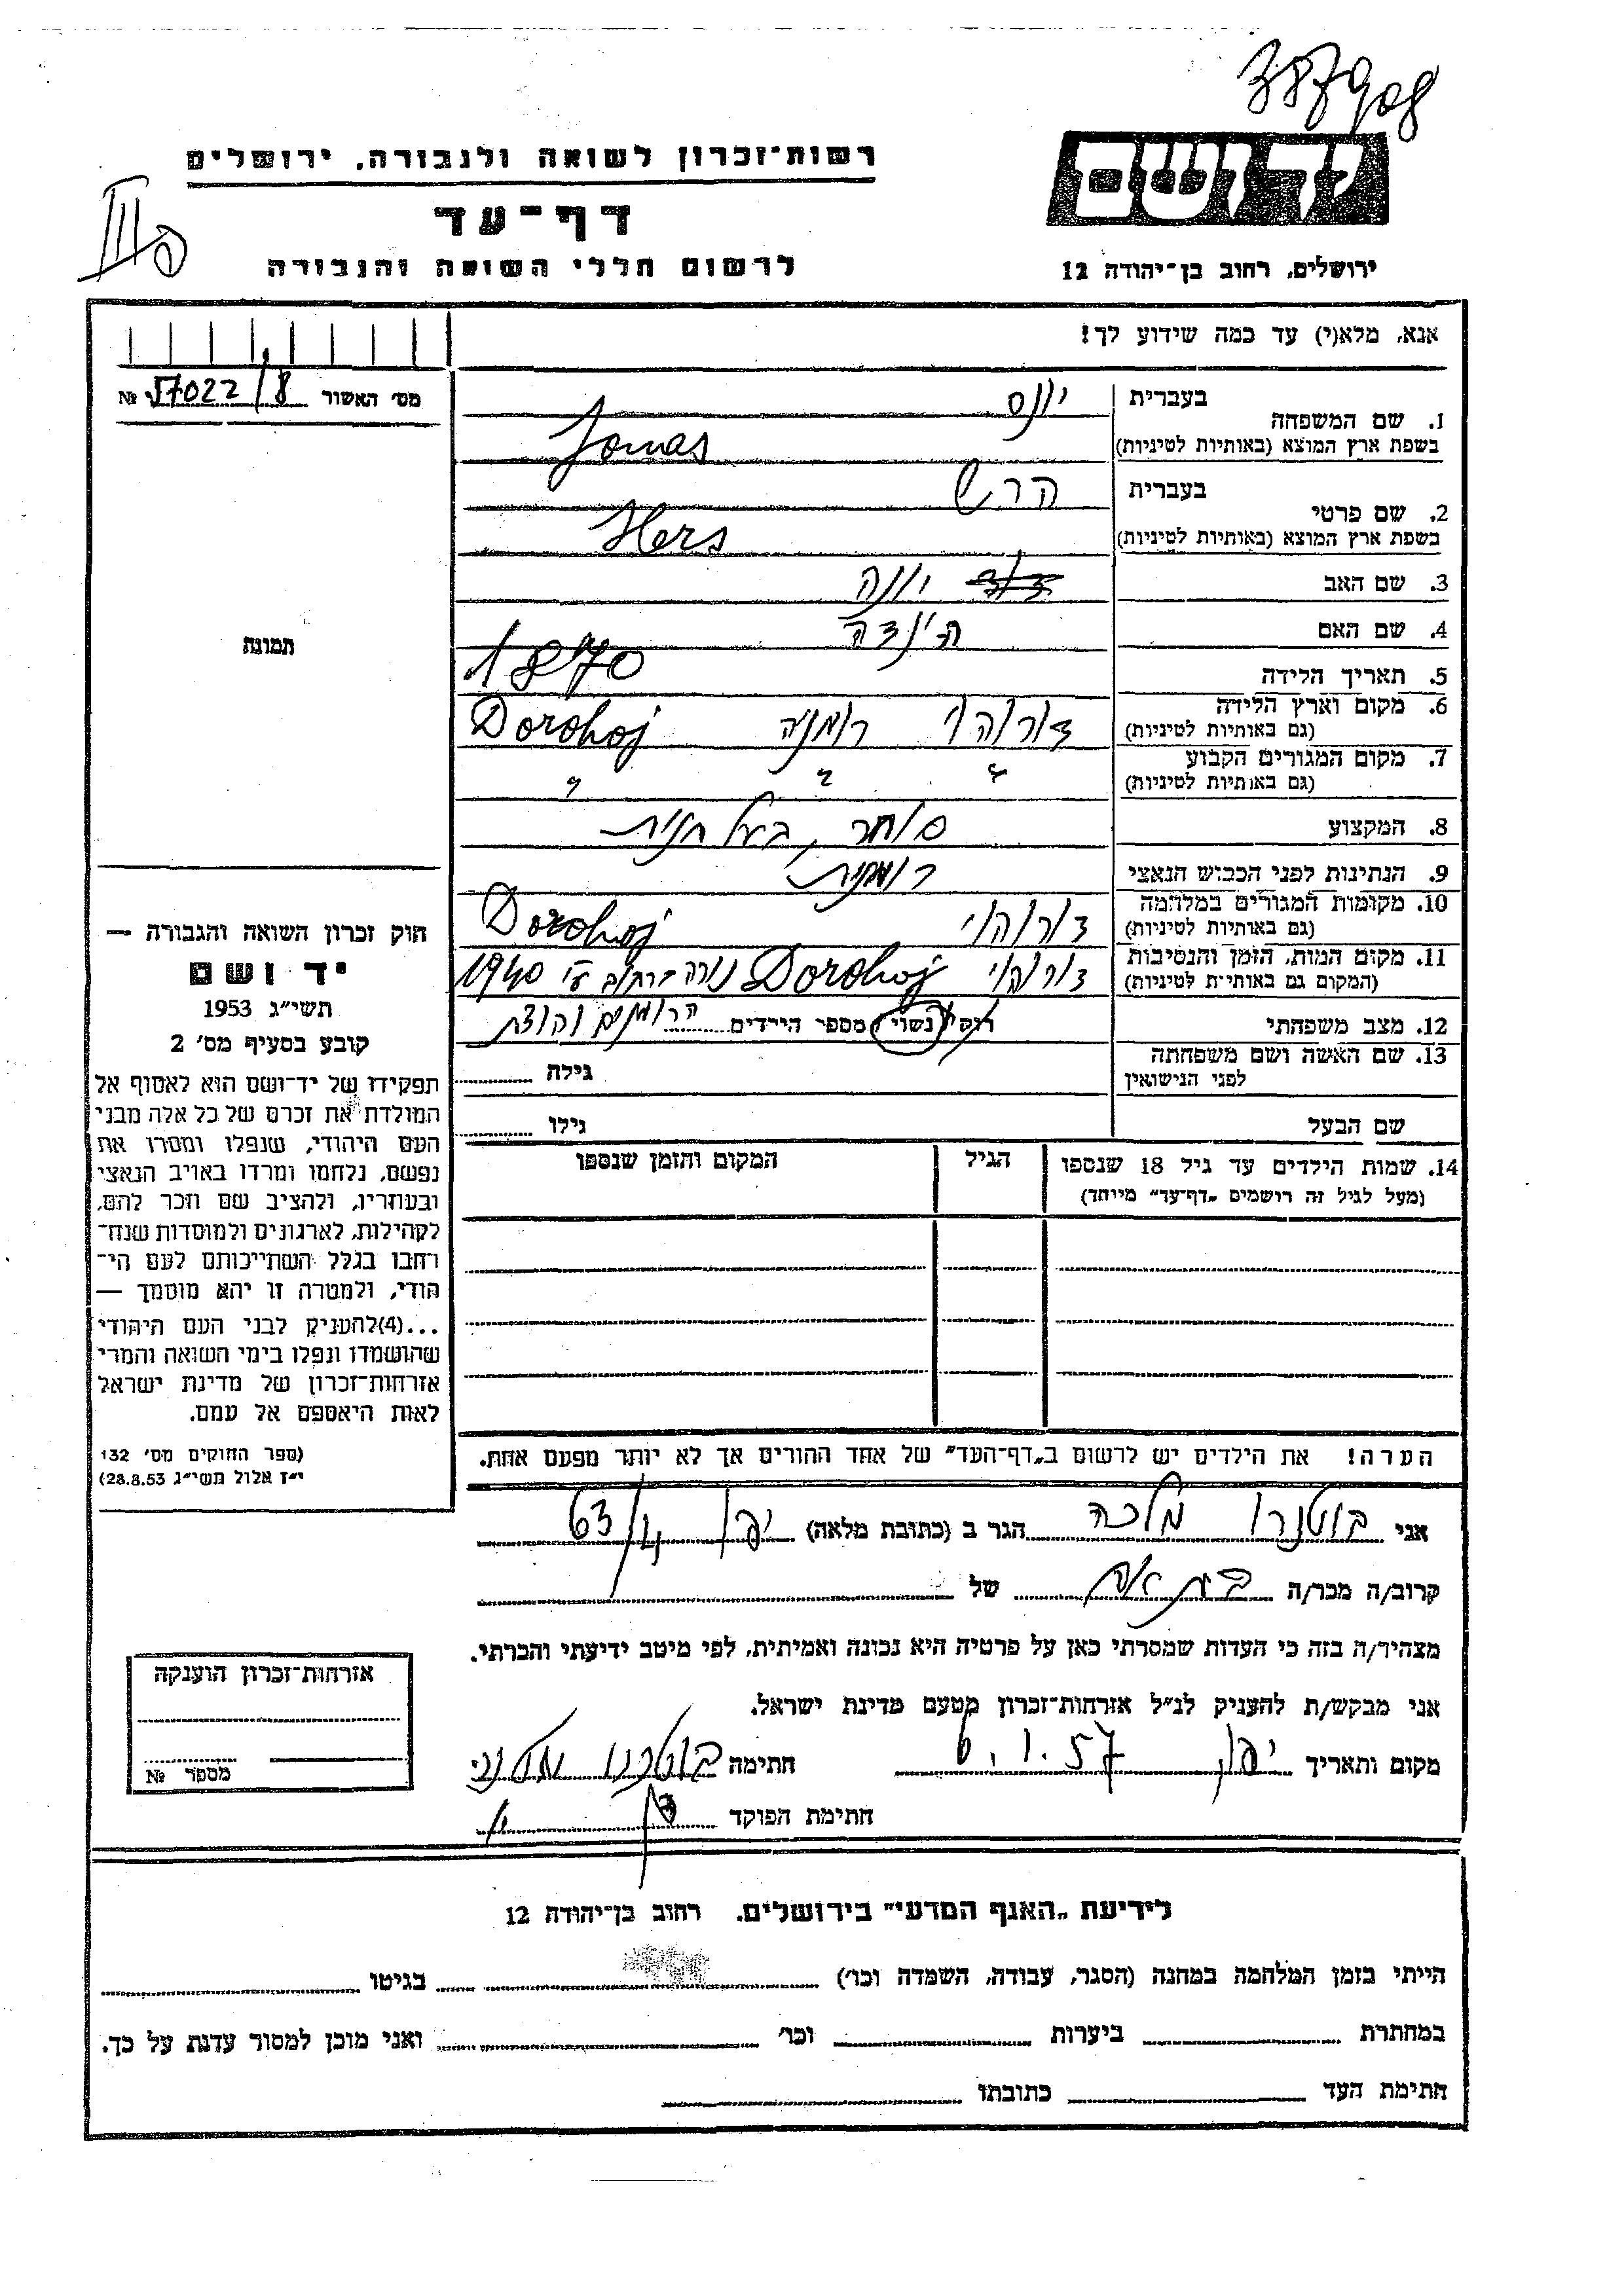 387908
רשות־זכרון לשואה ולגבורה, ירושלים
יד ושם
דף־עד
לרשום חללי השואה והגבורה
ירושלים, רחוב בן־יהודה 12
אנא, מלא(י) עד כמה שידוע לך!
מס׳ האשור № 57022/8
1. שם המשפחה בעברית יונס
בשפת ארץ המוצא (באותיות לטיניות) Jonas
2. שם פרטי בעברית הרש
בשפת ארץ המוצא (באותיות לטיניות) Hers
3. שם האב יונה
4. שם האם הינדה
5. תאריך הלידה 1870
6. מקום וארץ הלידה (גם באותיות לטיניות) דורוהוי רומניה Dorohoj
7. מקום המגורים הקבוע (גם באותיות לטיניות) " " "
8. המקצוע סוחר, בעל חנות
9. הנתינות לפני הכבוש הנאצי רומנית
10. מקומות המגורים במלחמה (גם באותיות לטיניות) דורוהוי Dorohoj
11. מקום המות, הזמן והנסיבות (המקום גם באותיות לטיניות) דורוהוי Dorohoj נורה ברחוב ע״י 1940
12. מצב משפחתי רוק/נשוי/מספר הילדים הרומנים
13. שם האשה ושם משפחתה לפני הנישואין גילה
שם הבעל גילו
14. שמות הילדים עד גיל 18 שנספו הגיל המקום והזמן שנספו
(מעל לגיל זה רושמים „דף־עד״ מיוחד)
הערה! את הילדים יש לרשום ב„דף־העד״ של אחד ההורים אך לא יותר מפעם אחת.
תמונה
חוק זכרון השואה והגבורה —
יד ושם
תשי״ג 1953
קובע בסעיף מס׳ 2
תפקידו של יד־ושם הוא לאסוף אל
המולדת את זכרם של כל אלה מבני
העם היהודי, שנפלו ומסרו את
נפשם, נלחמו ומרדו באויב הנאצי
ובעוזריו, ולהציב שם וזכר להם,
לקהילות, לארגונים ולמוסדות שנח־
רבו בגלל השתייכותם לעם הי־
הודי, ולמטרה זו יהא מוסמך —
...(4)להעניק לבני העם היהודי
שהושמדו ונפלו בימי השואה והמרי
אזרחות־זכרון של מדינת ישראל
לאות היאספם אל עמם.
(ספר החוקים מס׳ 132
י״ז אלול תשי״ג 28.8.53)
אני בוטנרו מלכה הגר ב (כתובת מלאה) יפו 63/4
קרוב/ה מכר/ה בת אח של
מצהיר/ה בזה כי העדות שמסרתי כאן על פרטיה היא נכונה ואמיתית, לפי מיטב ידיעתי והכרתי.
אני מבקש/ת להעניק לנ״ל אזרחות־זכרון מטעם מדינת ישראל.
מקום ותאריך יפו 6.1.57 חתימה בוטנרו
חתימת הפוקד
אזרחות־זכרון הוענקה
מספר №
לידיעת „האגף המדעי״ בירושלים, רחוב בן־יהודה 12
הייתי בזמן המלחמה במחנה (הסגר, עבודה, השמדה וכו׳) בגיטו
במחתרת ביערות וכו׳ ואני מוכן למסור עדות על כך.
חתימת העד כתובתו